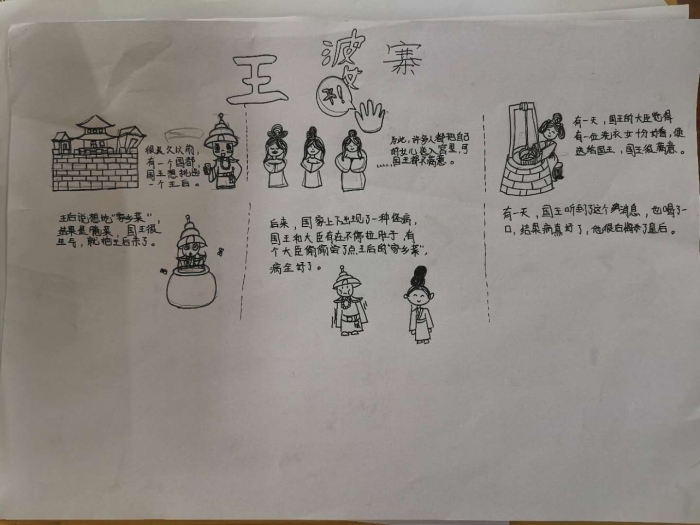 王 婆 寨
不!
很久久以前,
有一个国都,
国王想挑选
一个王后。
为此,许多人都把自己
的女儿送入宫里,可
......国王都不满意。
有一天,国王的大臣觉得
有一位来衣女十分好看,便
送给国王,国王很满意。
王后说想吃"家乡菜",
结果是腌菜,国王很
生气,就把王后杀了。
后来,国家上下出现了一种怪病,
国王和大臣有在不停拉肚子,有
个大臣偷偷尝了点王后的"家乡菜",
病全好了。
有一天,国王听到了这个消息,也喝了一
口,结果病真好了,他很后悔杀了皇后。